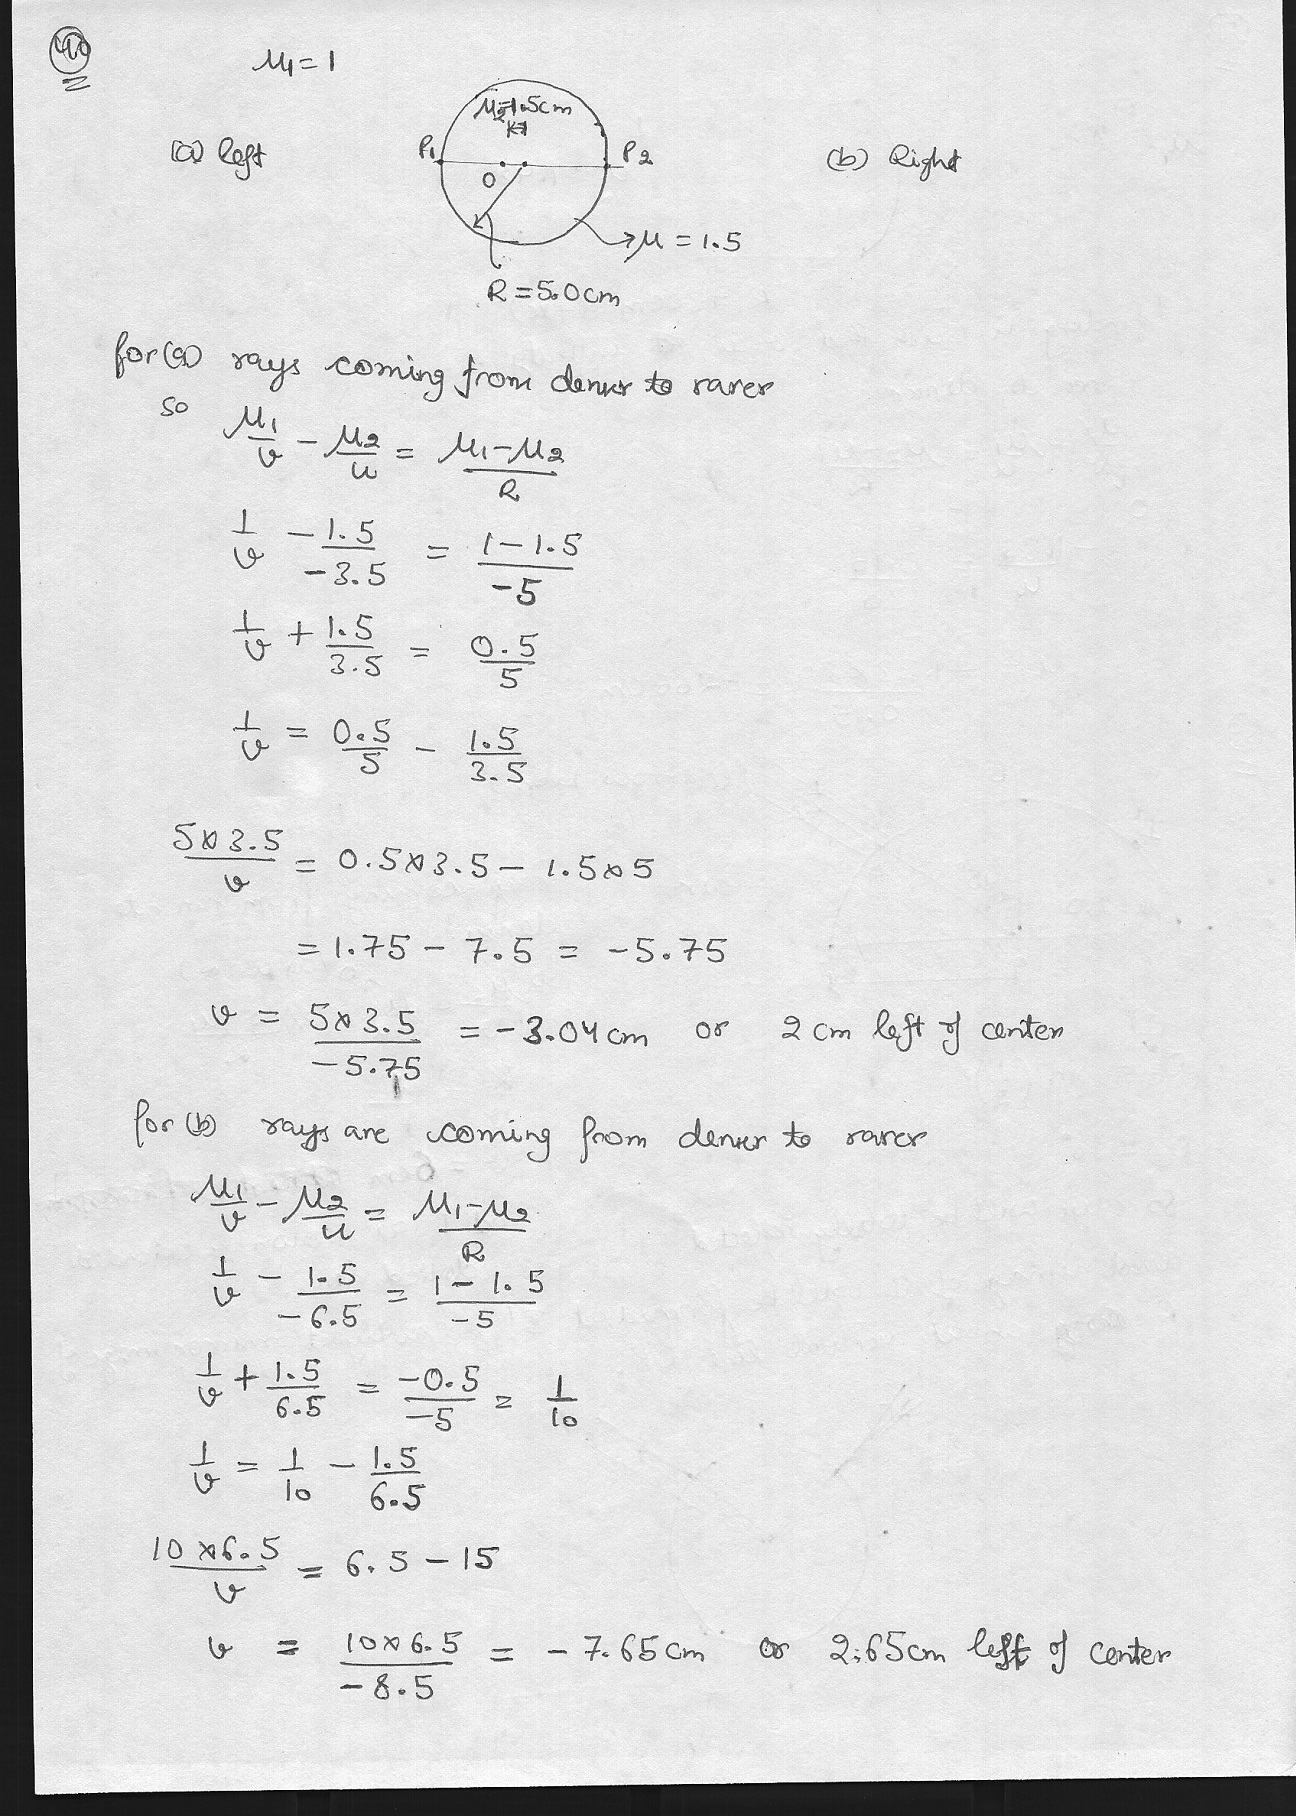 40
μ₁ = 1
μ₂=1.5cm
(a) left
P₁
O
P₂
(b) Right
μ = 1.5
R = 5.0cm
for (a) rays coming from denser to rarer
so μ₁/v - μ₂/u = (μ₁-μ₂)/R
1/v - 1.5/-3.5 = (1-1.5)/-5
1/v + 1.5/3.5 = 0.5/5
1/v = 0.5/5 - 1.5/3.5
(5×3.5)/v = 0.5×3.5 - 1.5×5
= 1.75 - 7.5 = -5.75
v = (5×3.5)/-5.75 = -3.04cm or 2 cm left of center
for (b) rays are coming from denser to rarer
μ₁/v - μ₂/u = (μ₁-μ₂)/R
1/v - 1.5/-6.5 = (1-1.5)/-5
1/v + 1.5/6.5 = -0.5/-5 = 1/10
1/v = 1/10 - 1.5/6.5
(10×6.5)/v = 6.5 - 15
v = (10×6.5)/-8.5 = -7.65cm or 2.65cm left of center